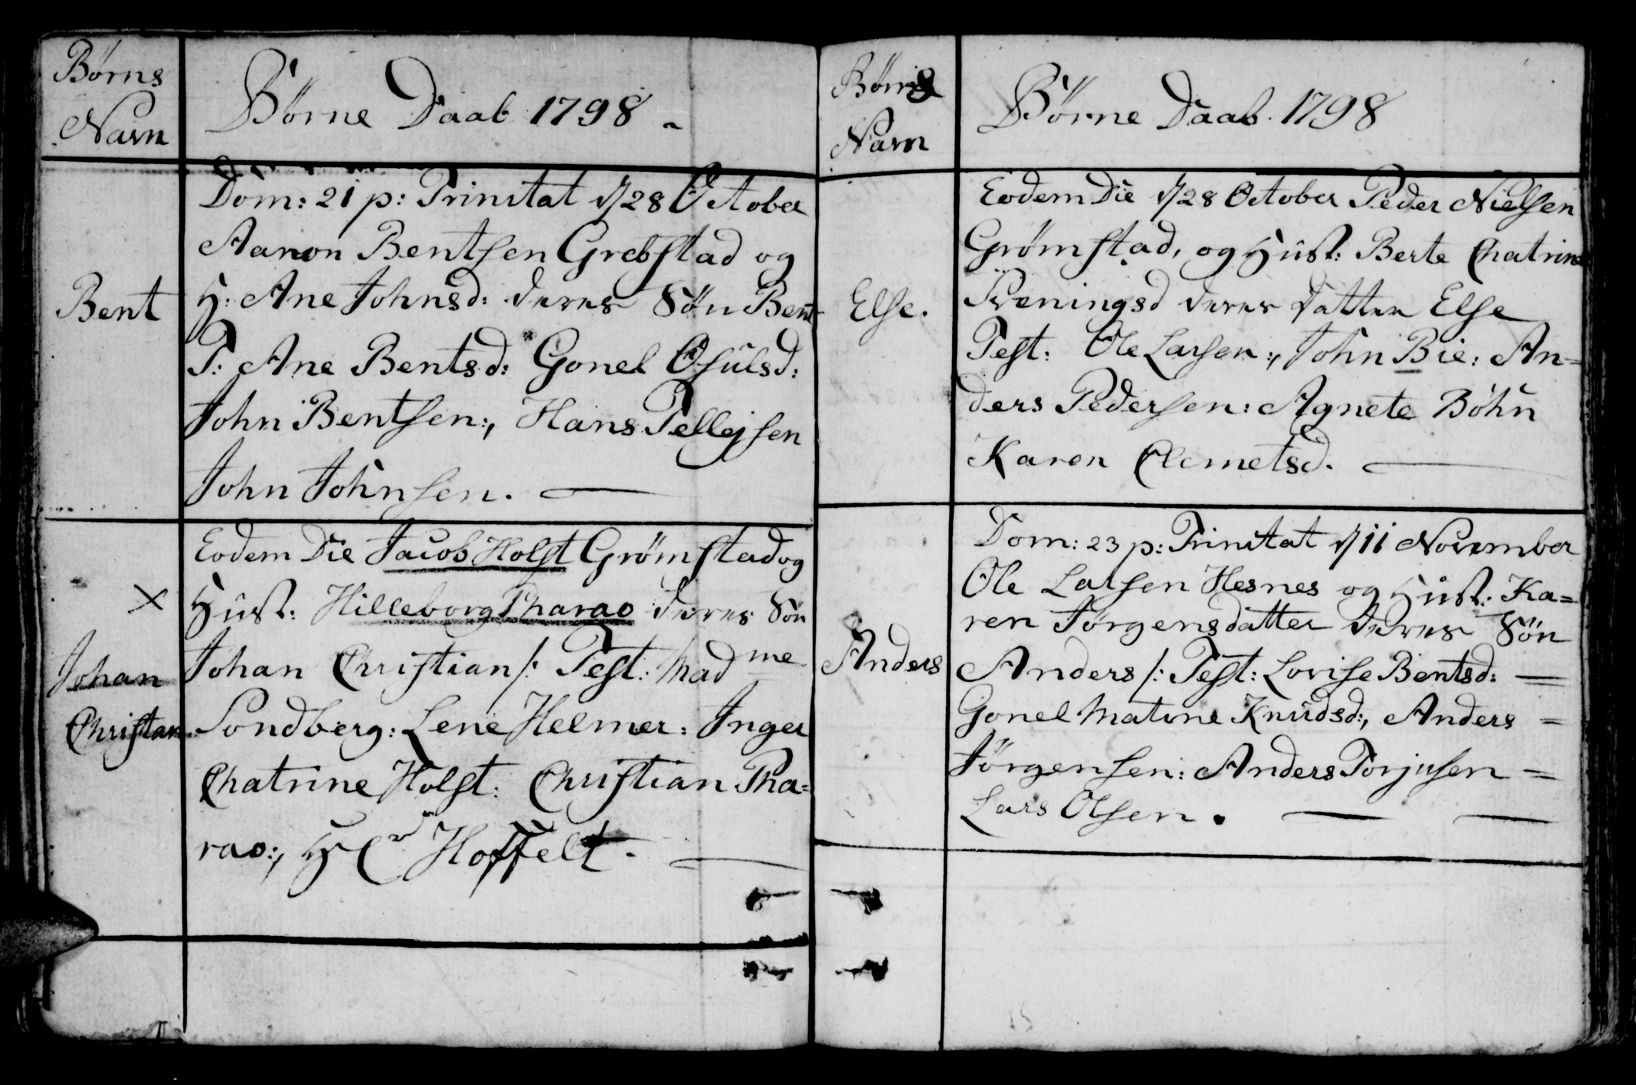 Børns
Navn
Børne Daab 1798
Bent
Dom: 21 p: Trinitat d/28 October
Aanon Bentsen Grebstad og
H: Ane Johnsd: deres Søn Bent
T: Ane Bentsd: Gonel Osulsd:
John Bentsen:, Hans Tellejsen
John Johnsen.
Johan
Christian
Eodem Die Jacob Holst Grømstad og
Hust: Hilleborg Pharao deres Søn
Johan Christian /: Test: Madme
Sondberg: Lene Helmer: Inger
Chatrine Holst: Christian Pha=
rao:, Hr Hoffelt.
Børns
Navn
Børne Daab 1798
Else.
Eodem Die d/28 October Peder Nielsen
Grømstad, og Hust: Berte Chatrine
Præningsd deres datter Else
Test: Ole Larsen:, John Bie: An-
ders Pedersen: Agnete Bøhn
Karen Clemetsd.
Anders
Dom: 23 p: Trinitat d/11 November
Ole Larsen Hesnes og Hust: Ka=
ren Jørgensdatter deres Søn
Anders /: Test: Lovise Bentsd:
Gonel Matine Knudsd:, Anders =
Jørgensen: Anders Torjusen =
Lars Olsen.